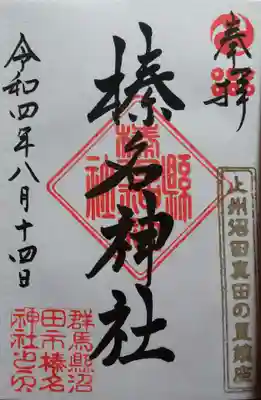 奉拝
上州沼田真田の里鎮座
榛名神社
群馬縣沼
田市榛名
神社
令和四年八月十四日